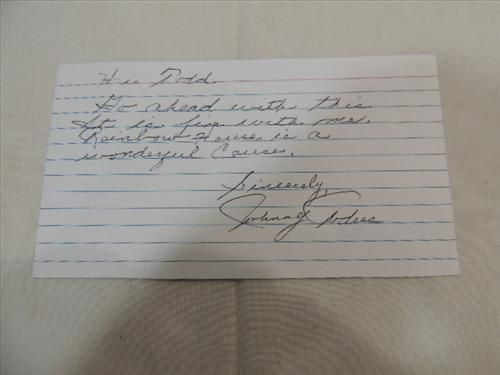 Hie Todd.
Go ahead with this
It is fine with me.
Rainbow House is a
wonderful Cause.
Sincerely,
Johnny